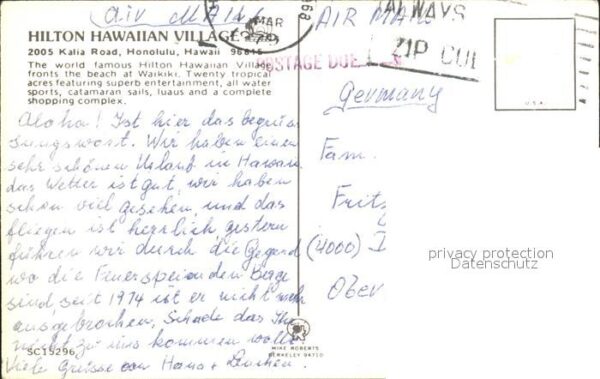 Air Mail
MAR
AIR MAIL
ALWAYS
ZIP CODE
POSTAGE DUE
HILTON HAWAIIAN VILLAGE
2005 Kalia Road, Honolulu, Hawaii 96815
The world famous Hilton Hawaiian Village
fronts the beach at Waikiki. Twenty tropical
acres featuring superb entertainment, all water
sports, catamaran sails, luaus and a complete
shopping complex.
U.S.A.
Aloha! Ist hier das begrüs
sungswort. Wir haben einen
sehr schönen Urlaub in Hawaii.
das Wetter ist gut, wir haben
schon viel gesehen und das
fliegen ist herrlich, gestern
führen wir durch die Gegend
wo die Feuerspeienden Berge
sind, seit 1974 ist er nicht mehr
ausgebrochen, Schade das Ihr
nicht zu uns kommen wollt
Viele Grüsse von Hans +
Germany
Fam.
Fritz
(4000) D
Ober
privacy protection
Datenschutz
SC15296
MIKE ROBERTS
BERKELEY 94710